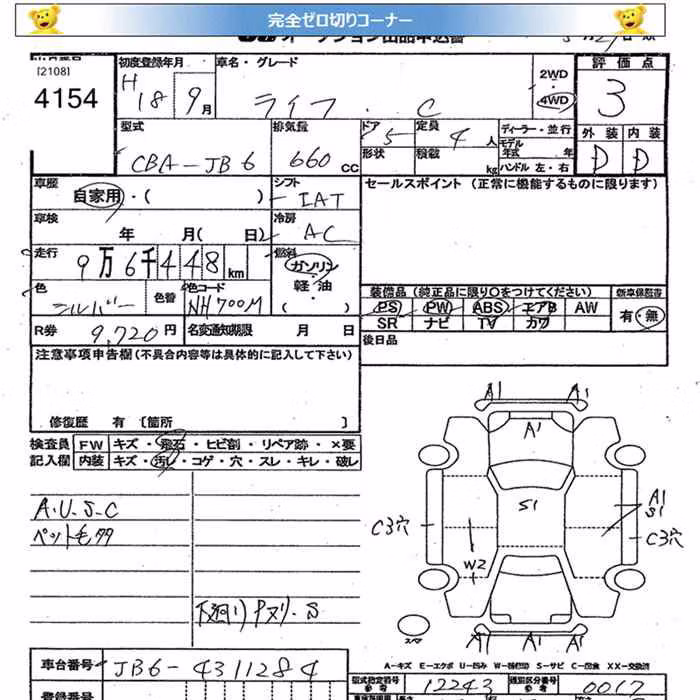 完全ゼロ切りコーナー
オークション出品申込書
[2108]
4154
初度登録年月
H18 9月
車名・グレード
ライフ ・ C
2WD
4WD
評価点
3
型式
CBA-JB6
排気量
660 CC
ドア
5
形状
定員
4人
積載
kg
ディーラー・並行
モデル年式 年
ハンドル 左・右
外装 内装
D D
車歴
自家用・( )
シフト
IAT
セールスポイント (正常に機能するものに限ります)
車検
年 月( 日)
冷房
AC
走行
9万6千448km
燃料
ガソリン
軽・油
( )
色
シルバー
色替
色コード
NH700M
装備品 (純正品に限り○をつけてください)
新車保証書
PS PW ABS エアB AW
有・無
SR ナビ TV カワ
R券
9,720円
名変通知期限 月 日
後日品
注意事項申告欄 (不具合内容等は具体的に記入して下さい)
修復歴 有 [箇所 ]
検査員 FW キズ・飛石・ヒビ割・リペア跡・×要
記入欄 内装 キズ・汚レ・コゲ・穴・スレ・キレ・破レ
A.U.S.C
ペット毛
下廻りサビ・S
A1 A1
A1
S1
A1
S1
C3穴
C3穴
W2
A1 A1
スペア
A-キズ E-エクボ U-凹み S-サビ C-腐食 XX-交換済
車台番号
JB6-4311284
型式指定番号
12243
類別区分番号
0017
登録番号